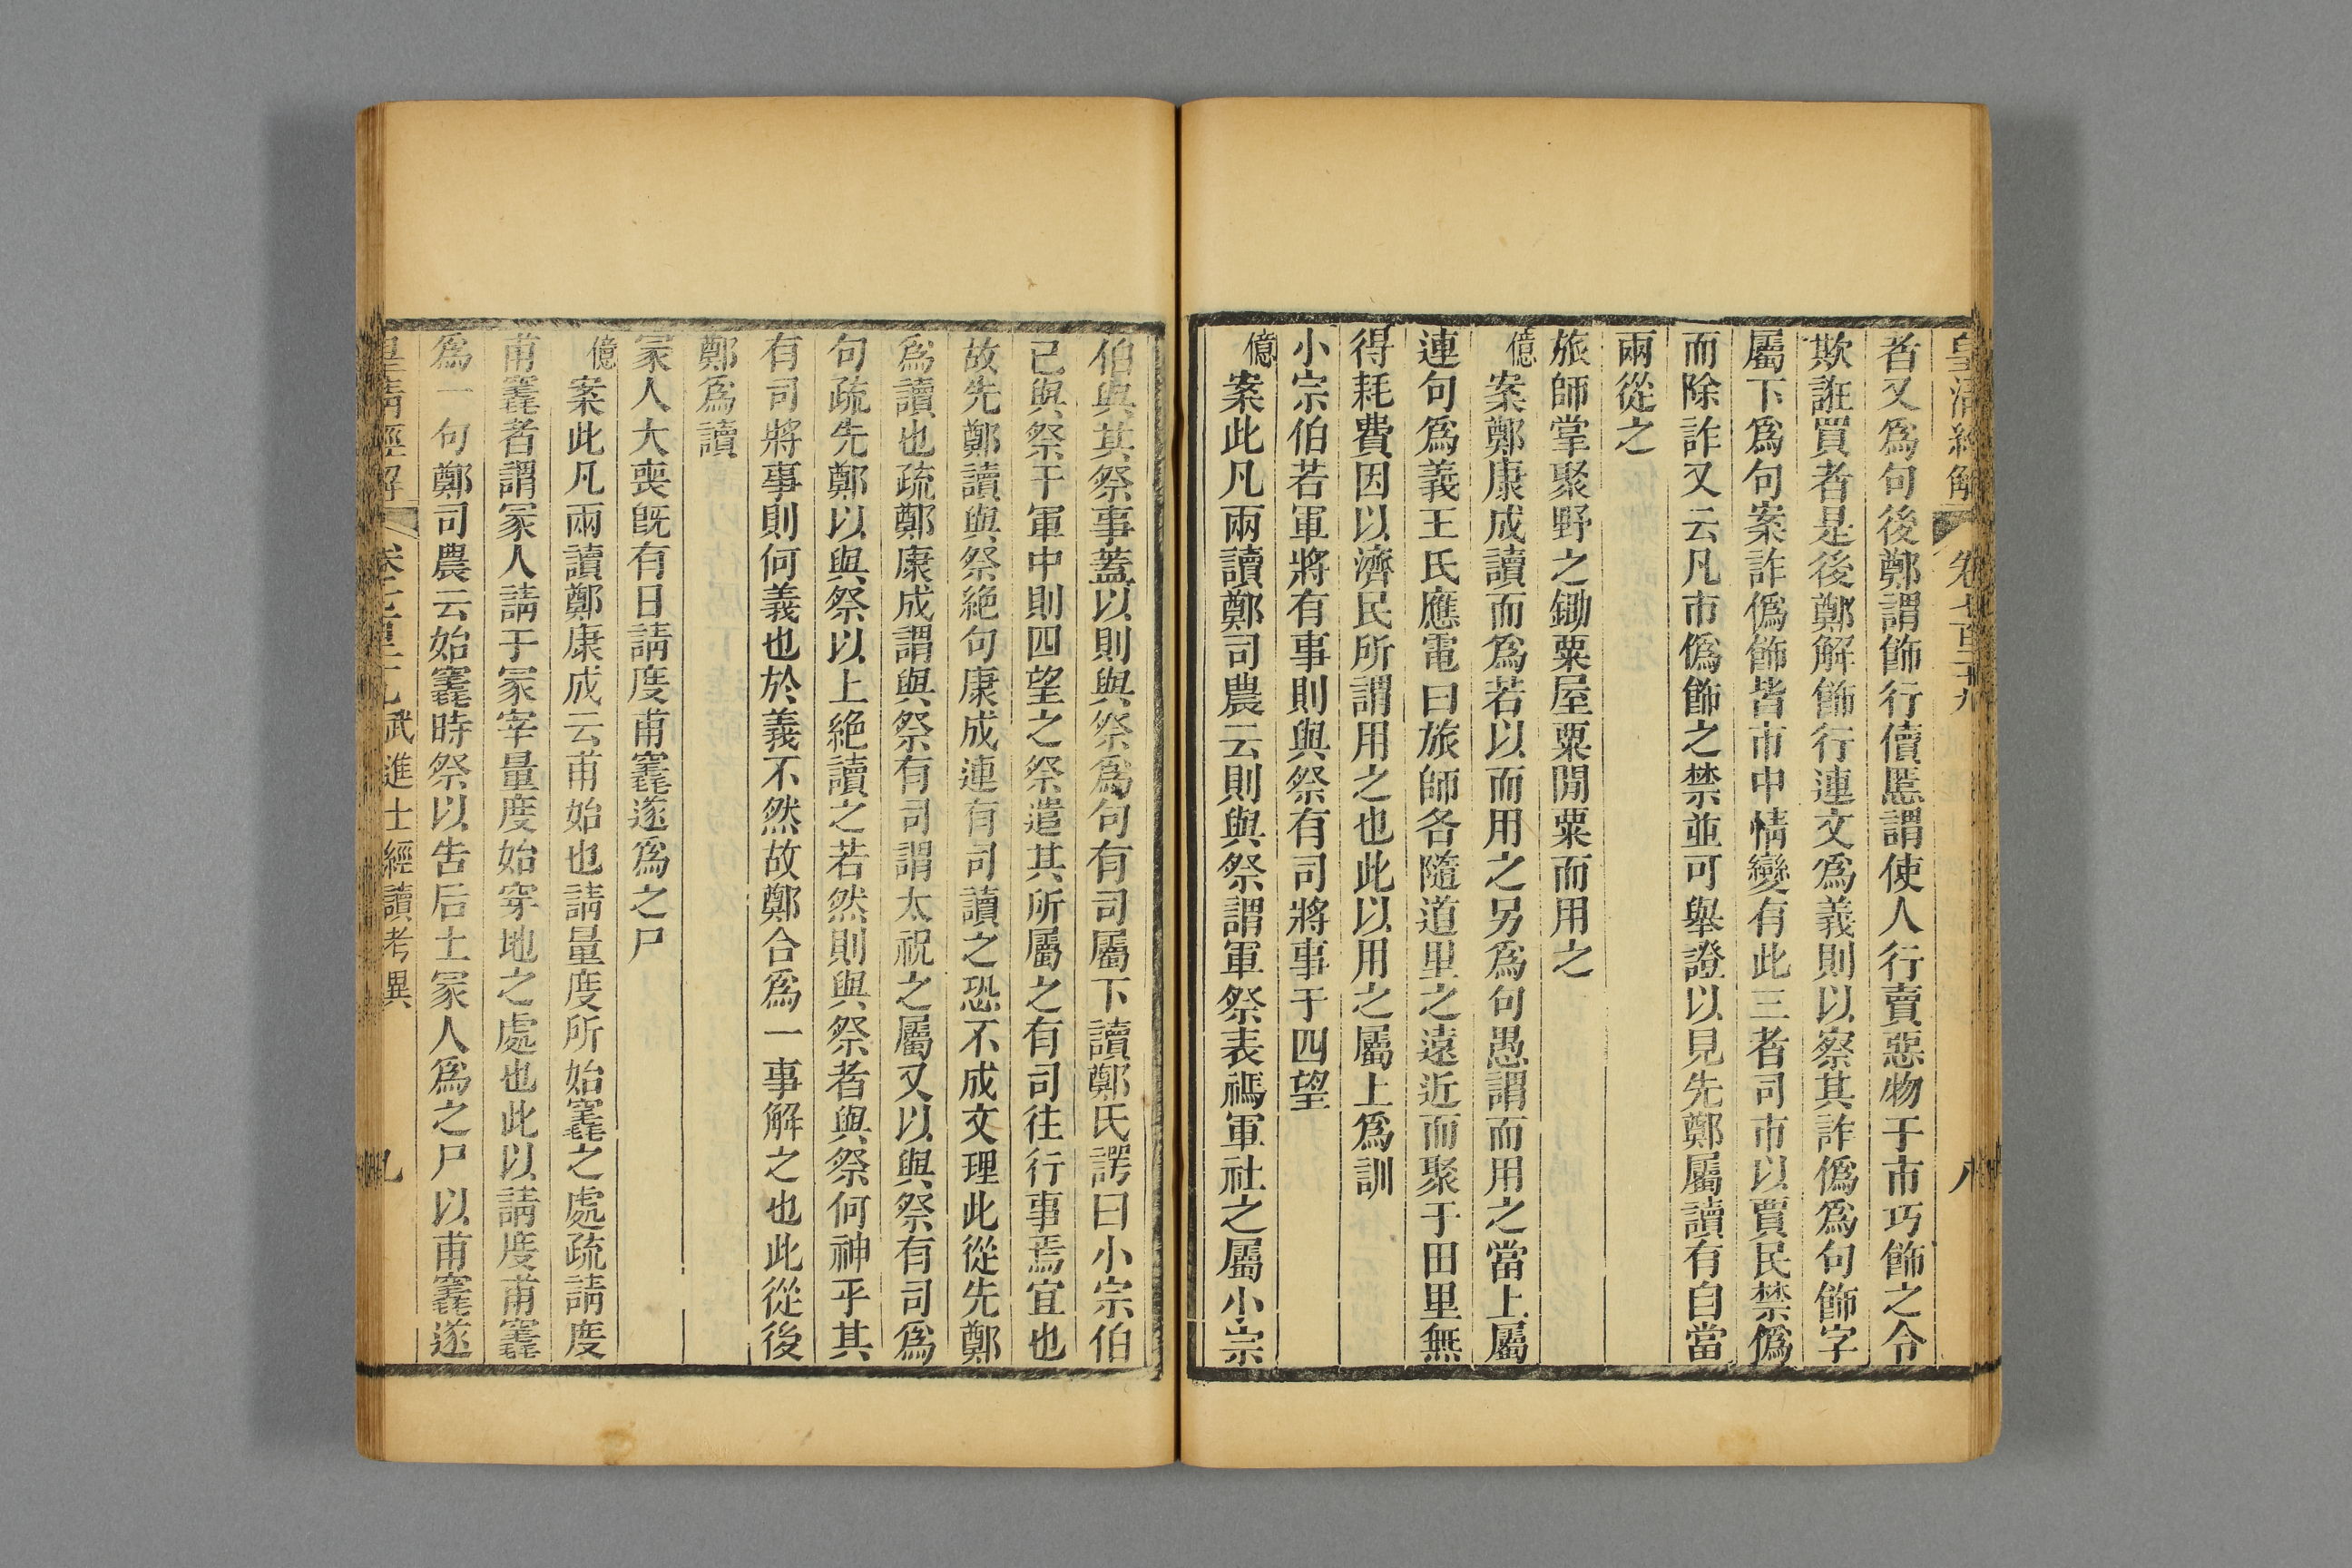 皇清經解 卷七百二十九 八
者又爲句後鄭謂飾行儥慝謂使人行賣惡物于市巧飾之令
欺誑買者是後鄭解飾行連文爲義則以察其詐僞爲句飾字
屬下爲句案詐僞飾皆市中情變有此三者司市以賈民禁僞
而除詐又云凡市僞飾之禁並可舉證以見先鄭屬讀有自當
兩從之
旅師掌聚野之鋤粟屋粟閒粟而用之
億案鄭康成讀而爲若以而用之另爲句愚謂而用之當上屬
連句爲義王氏應電曰旅師各隨道里之遠近而聚于田里無
得耗費因以濟民所謂用之也此以用之屬上爲訓
小宗伯若軍將有事則與祭有司將事于四望
億案此凡兩讀鄭司農云則與祭謂軍祭表禡軍社之屬小宗
伯與其祭事蓋以則與祭爲句有司屬下讀鄭氏諤曰小宗伯
已與祭于軍中則四望之祭遣其所屬之有司往行事焉宜也
故先鄭讀與祭絶句康成連有司讀之恐不成文理此從先鄭
爲讀也疏鄭康成謂與祭有司謂太祝之屬又以與祭有司爲
句疏先鄭以與祭以上絶讀之若然則與祭者與祭何神乎其
有司將事則何義也於義不然故鄭合爲一事解之也此從後
鄭爲讀
冡人大喪旣有日請度甫竁遂爲之尸
億案此凡兩讀鄭康成云甫始也請量度所始竁之處疏請度
甫竁者謂冡人請于冡宰量度始穿地之處也此以請度甫竁
爲一句鄭司農云始竁時祭以告后土冡人爲之尸以甫竁遂
皇清經解 卷七百二十九 武進士經讀考異 九